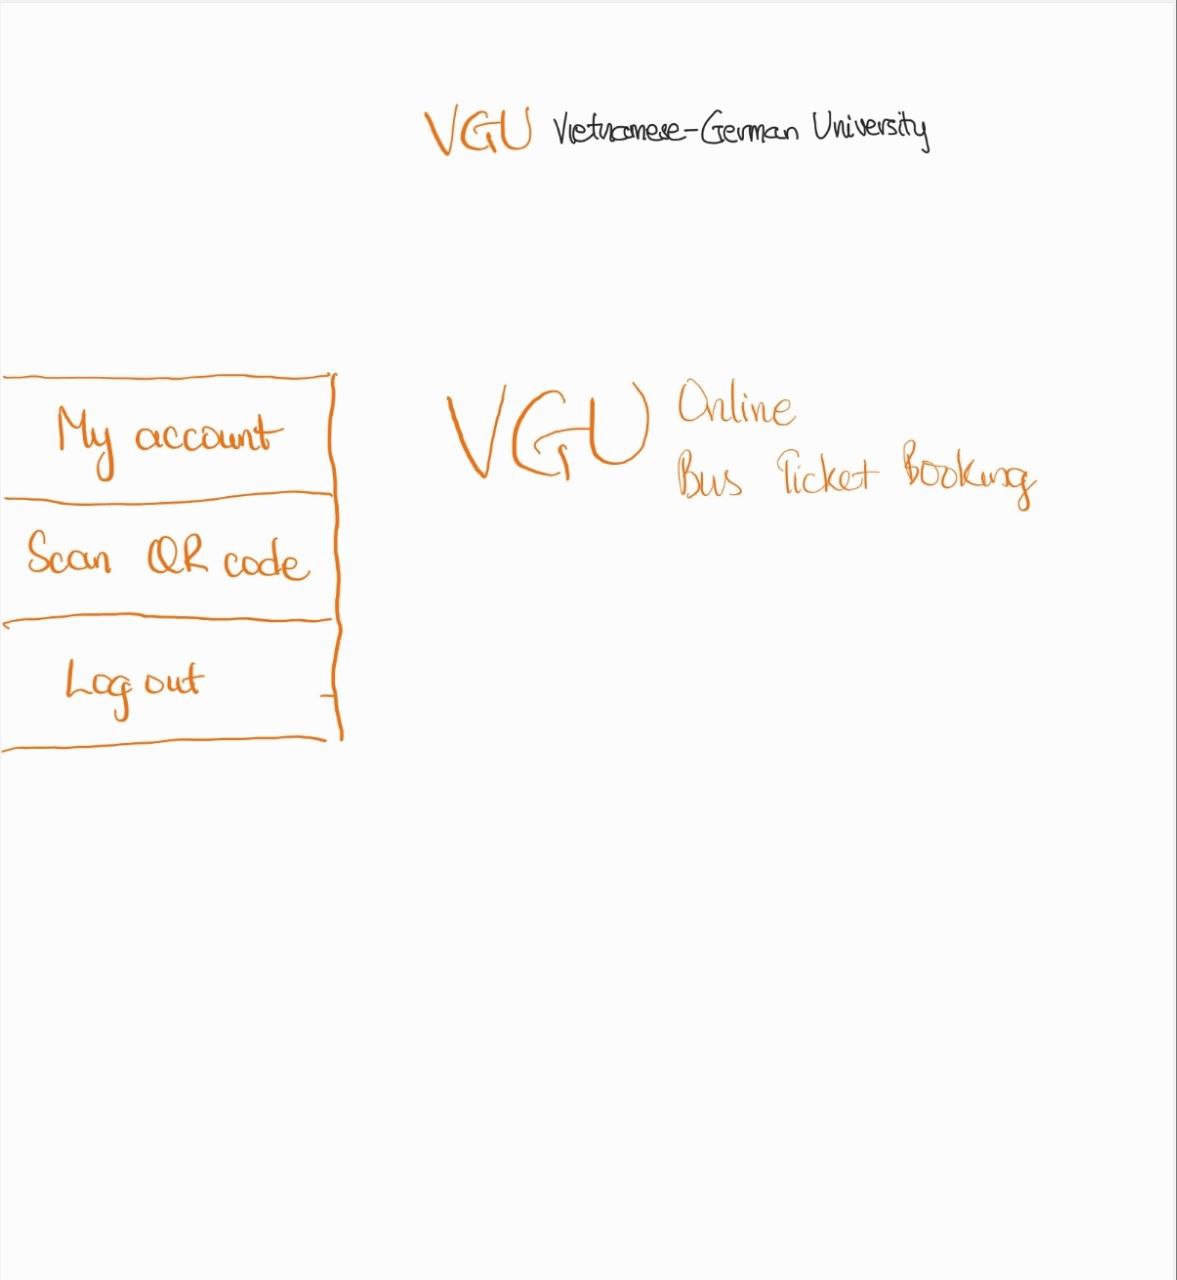 VGU Vietnamese-German University
My account
Scan QR code
Log out
VGU Online
Bus Ticket Booking